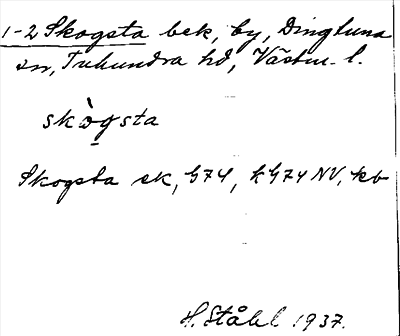 1-2 Skogsta bek, by, Dingtuna
sn, Tuhundra hd, Västm. l.
skò̱gsta
Skogsta ek, G74, kG74 NV, kb
H. Ståhl 1937.